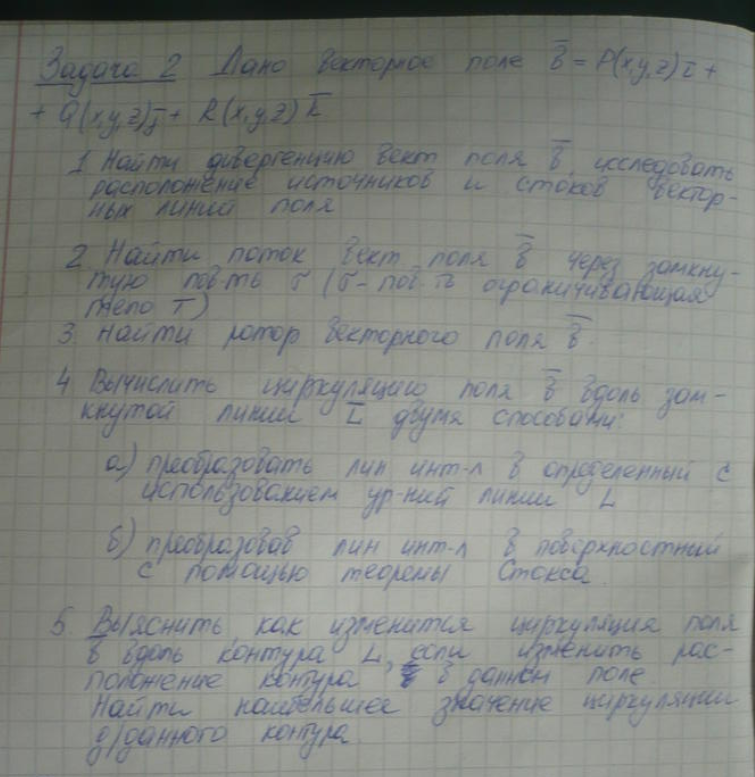 Задача 2 Дано векторное поле b̄ = P(x,y,z)ī +
+ Q(x,y,z)j̄ + R(x,y,z) k̄
1 Найти дивергенцию вект поля b̄, исследовать
расположение источников и стоков вектор-
ных линий поля
2 Найти поток вект поля b̄ через замкну-
тую пов-ть σ (σ - пов-ть ограничивающая
тело T)
3 Найти ротор векторного поля b̄.
4 Вычислить циркуляцию поля b̄ вдоль зам-
кнутой линии L̄ двумя способами:
а) преобразовать лин инт-л в определенный с
использованием ур-ний линии L
б) преобразовав лин инт-л в поверхностный
с помощью теоремы Стокса.
5. Выяснить как изменится циркуляция поля
b̄ вдоль контура L, если изменить рас-
положение контура в данном поле.
Найти наибольшее значение циркуляции
д/данного контура.